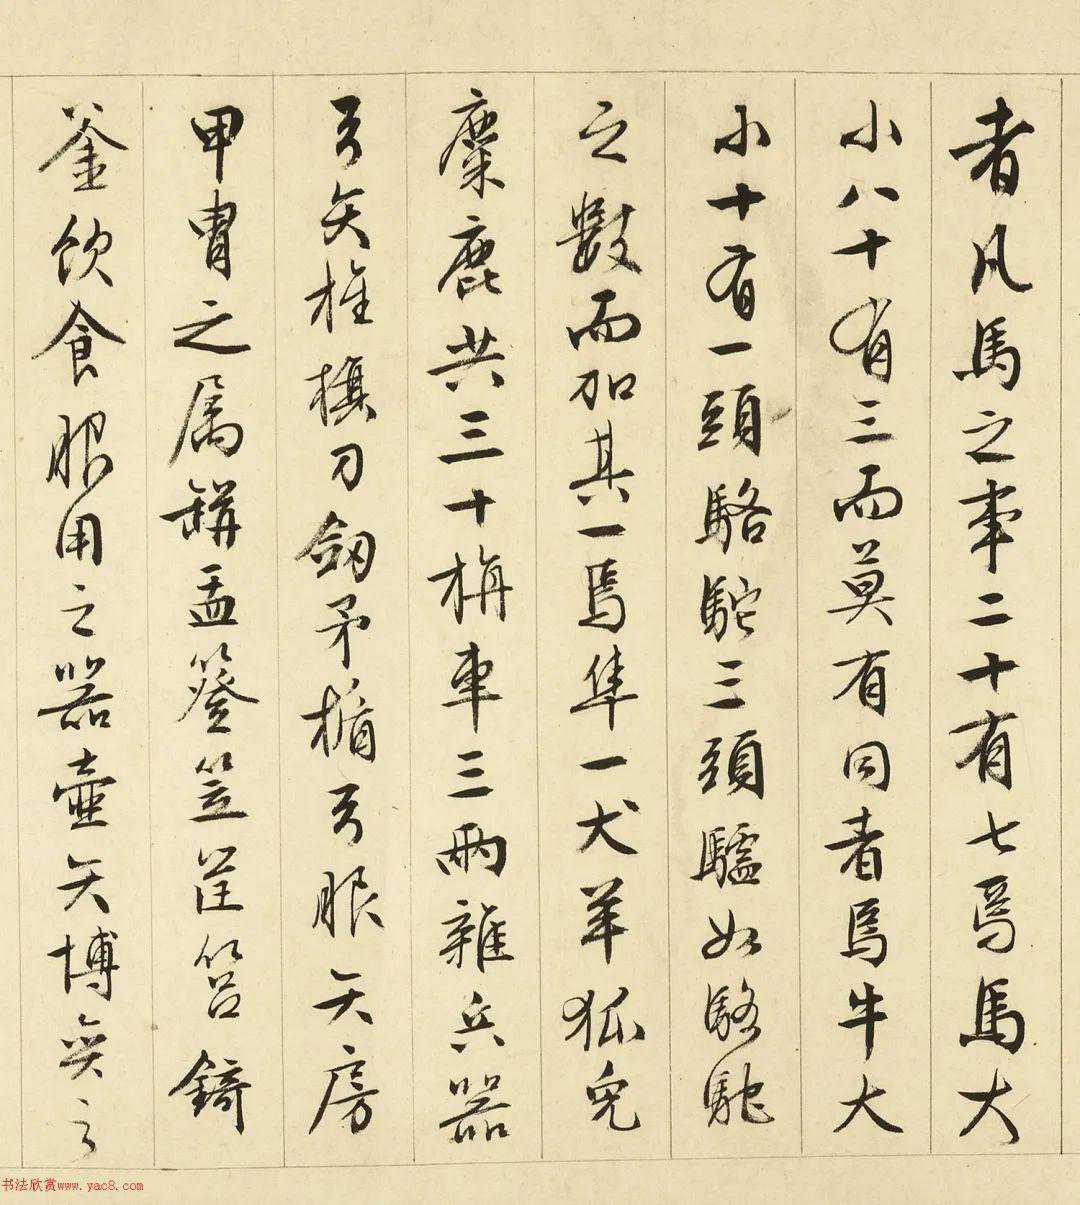 者凡馬之事二十有七焉馬大
小八十有三而莫有同者焉牛大
小十有一頭駱駝三頭驢如駱駝
之數而加其一焉隼一犬羊狐兔
麋鹿共三十旃車三兩雜兵器
弓矢旌旗刀劒矛楯弓服矢房
甲冑之属缾盂簦笠筐筥錡
釜飲食服用之器壺矢博弈之
书法欣赏www.yac8.com